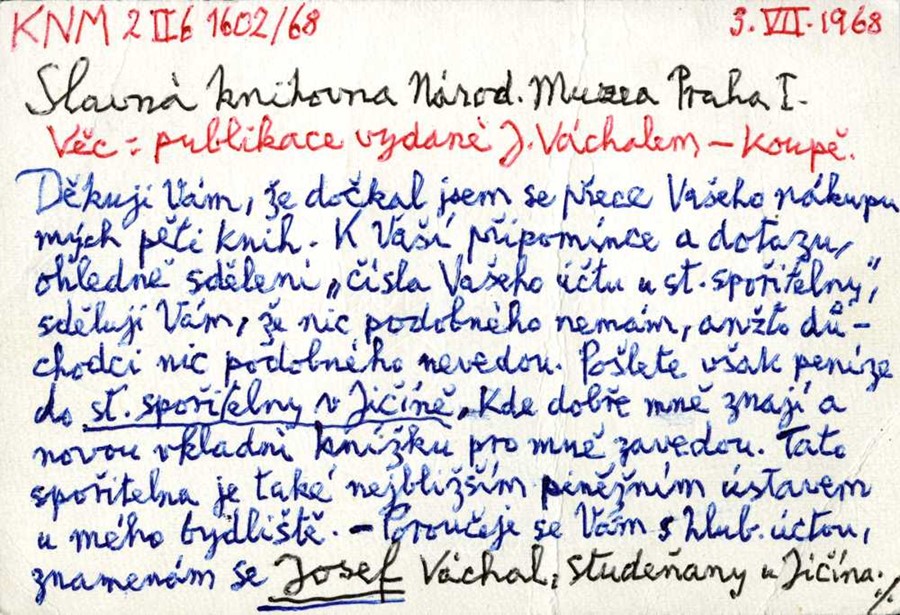 KNM 2 II6 1602/68 3. VII. 1968
Slavná knihovna Národ. Muzea Praha I.
Věc = publikace vydané J. Váchalem – Koupě.
Děkuji Vám, že dočkal jsem se přece Vašeho nákupu
mých pěti knih. K Vaší připomínce a dotazu,
ohledně sdělení „čísla Vašeho účtu u st. spořitelny“,
sděluji Vám, že nic podobného nemám, anžto dů-
chodci nic podobného nevedou. Pošlete však peníze
do st. spořitelny v Jičíně, Kde dobře mně znají a
novou vkladní knížku pro mně zavedou. Tato
spořitelna je také nejbližším peněžním ústavem
u mého bydliště. – Poroučeje se Vám s hlub. úctou,
znamenám se Josef Váchal, Studeňany u Jičína. ./.